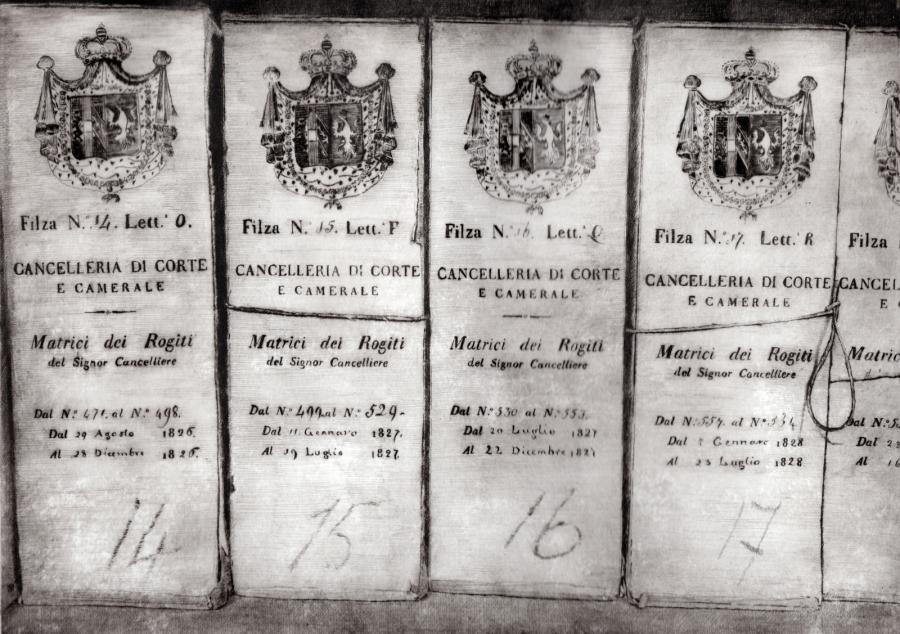 Filza N.º 14. Lett.ª O.
CANCELLERIA DI CORTE
E CAMERALE
Matrici dei Rogiti
del Signor Cancelliere
Dal N.º 471. al N.º 498.
Dal 29 Agosto 1826.
Al 28 Dicembre 1826.
14
Filza N.º 15. Lett.ª P
CANCELLERIA DI CORTE
E CAMERALE
Matrici dei Rogiti
del Signor Cancelliere
Dal N.º 499. al N.º 529.
Dal 11 Gennaro 1827.
Al 19 Luglio 1827.
15
Filza N.º 16. Lett.ª Q
CANCELLERIA DI CORTE
E CAMERALE
Matrici dei Rogiti
del Signor Cancelliere
Dal N.º 530 al N.º 553.
Dal 20 Luglio 1827
Al 22 Dicembre 1827
16
Filza N.º 17. Lett.ª R
CANCELLERIA DI CORTE
E CAMERALE
Matrici dei Rogiti
del Signor Cancelliere
Dal N.º 554. al N.º
Dal Gennaro 1828
Al 23 Luglio 1828
17
Filza
CANCELL
E C
Matric
Dal N.º
Dal 2
Al 1